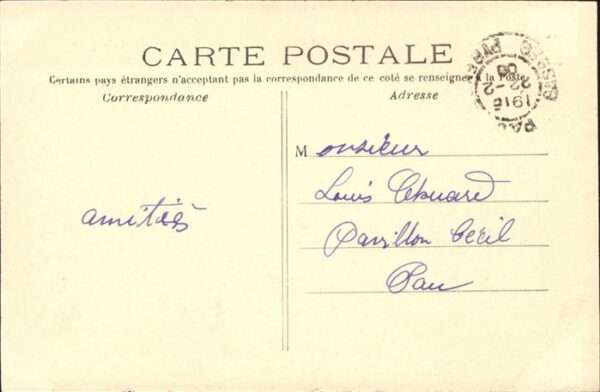 CARTE POSTALE
Certains pays étrangers n'acceptant pas la correspondance de ce coté se renseigner à la Poste
Correspondance
Adresse
PAU
1915
22-2
BSSES PYRÉES
Monsieur
Louis
Pavillon Cecil
Pau
amitiés